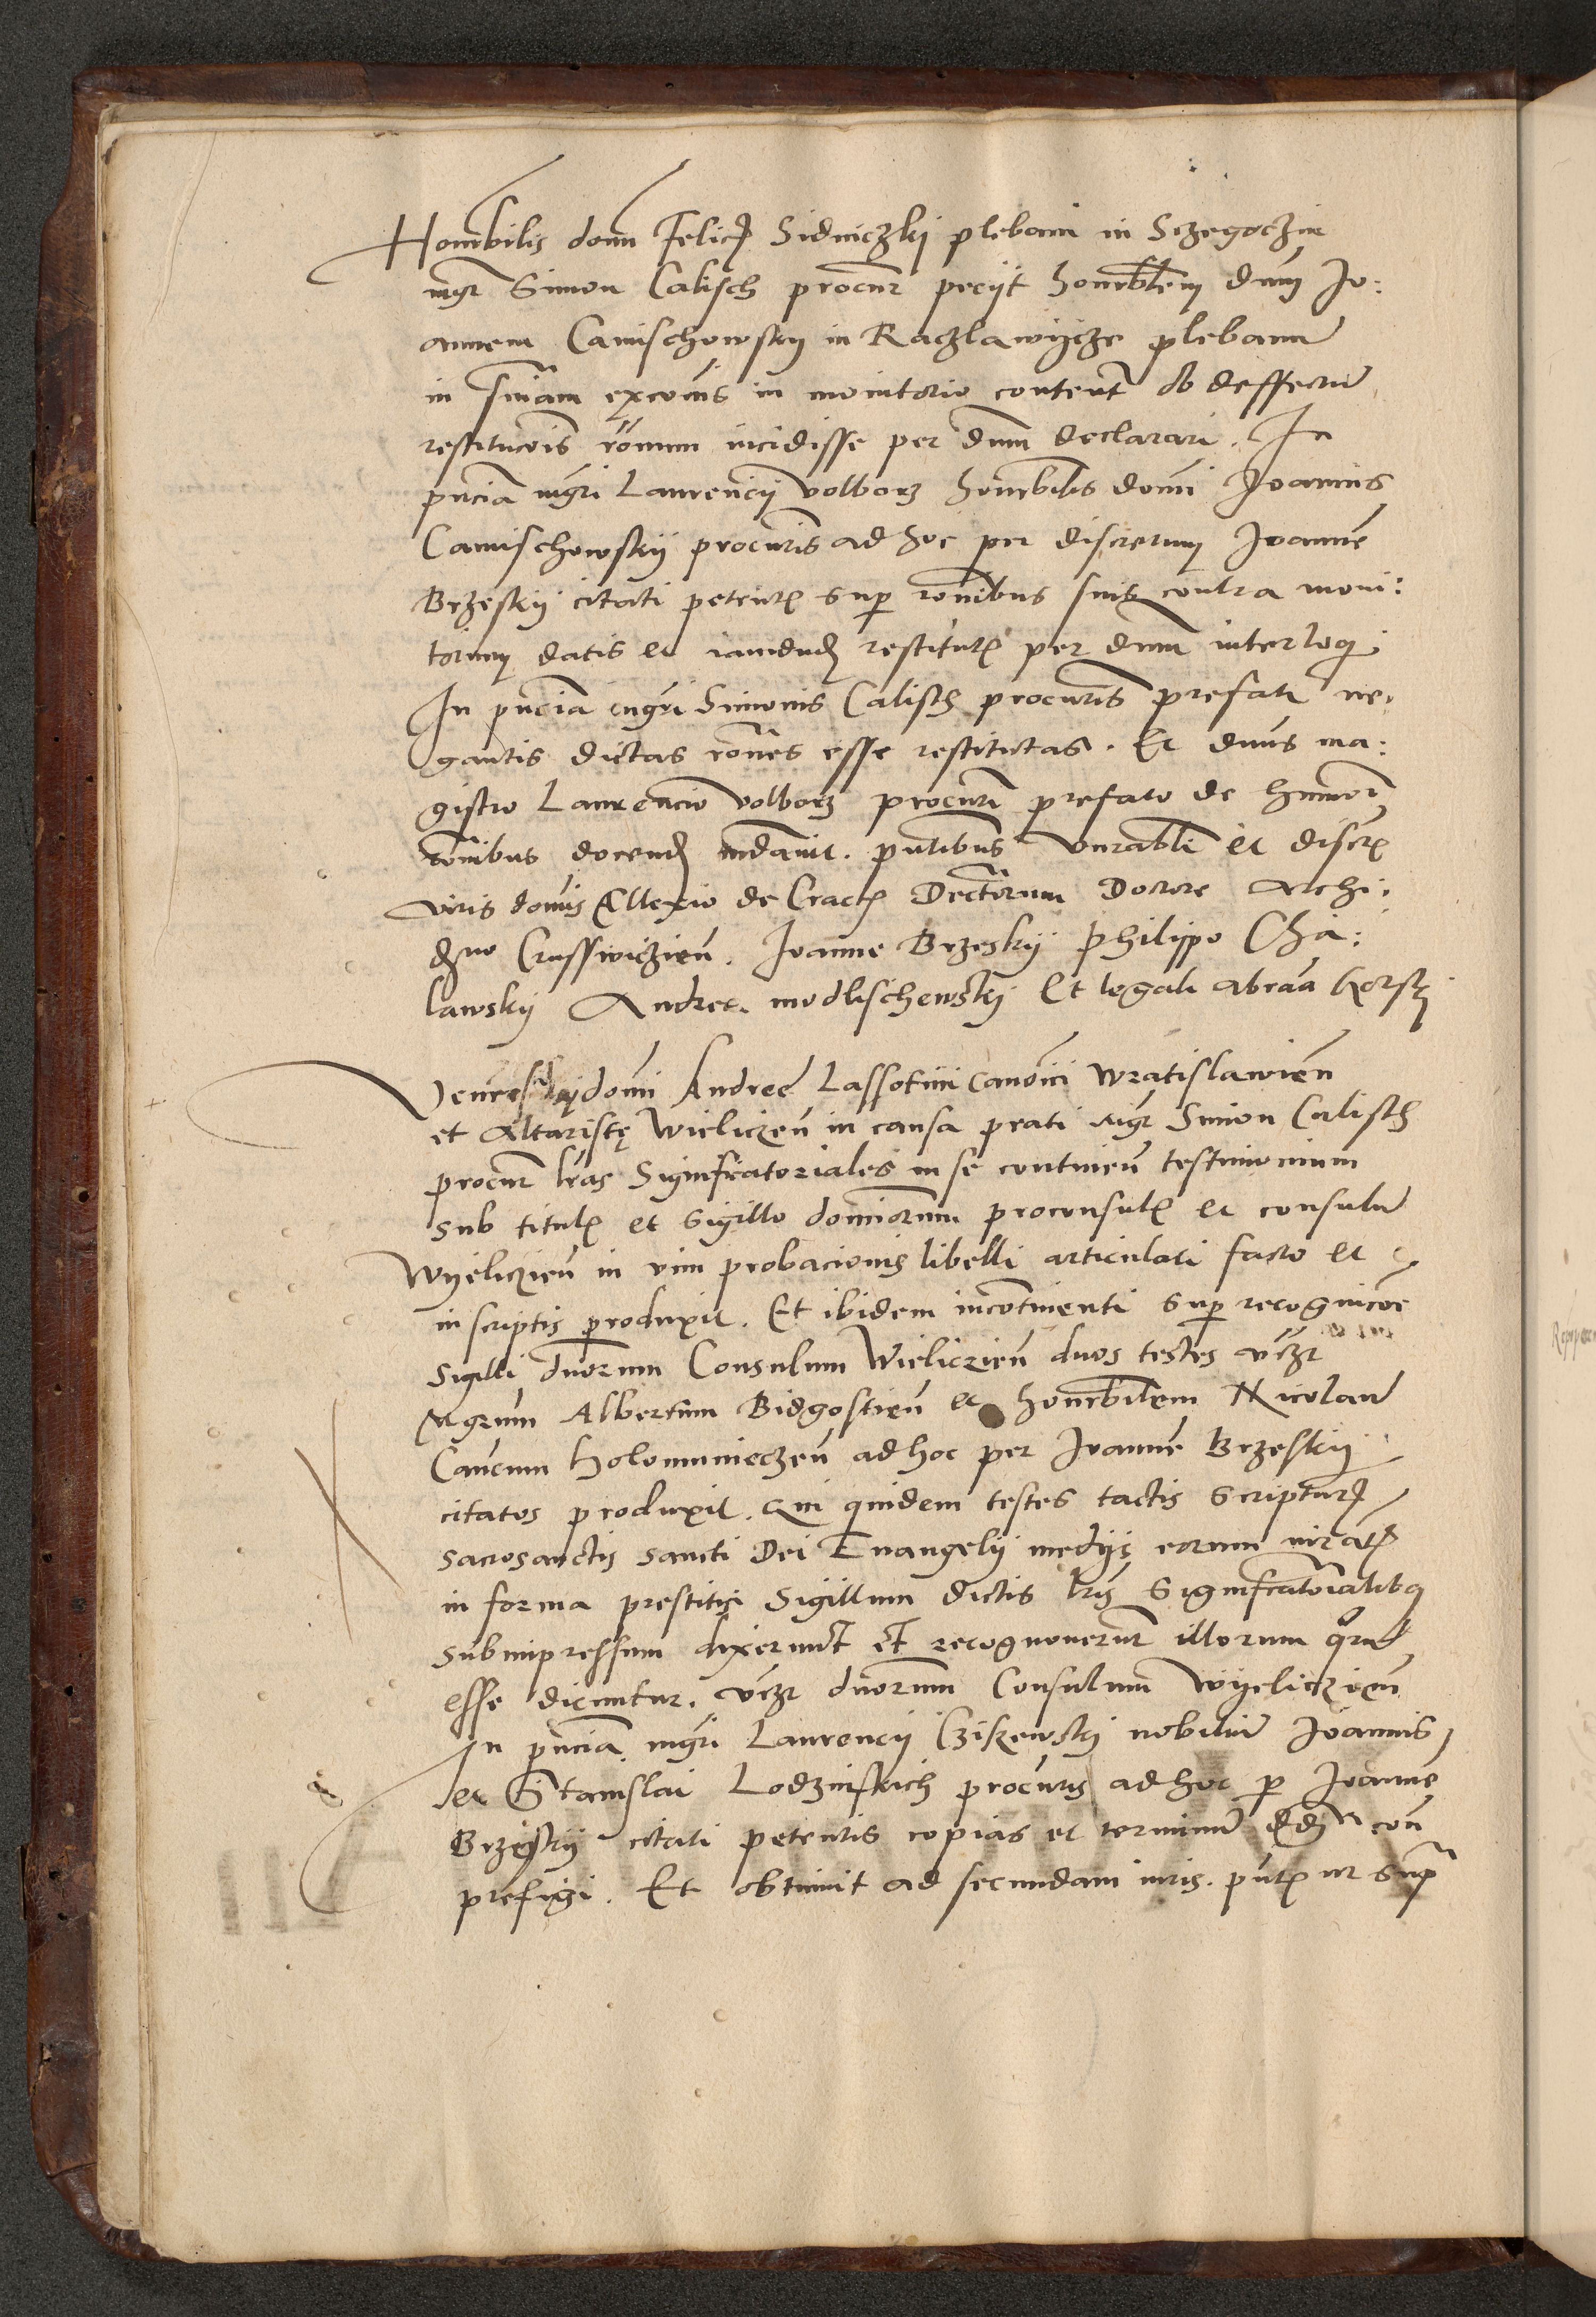 Honorabilis domi Felicis Sidniczkj plebani in Sczegoczin
mgr Simon Calisch procur peciit honorabilem dnum Jo:
annem Camischowskij in Raczlawijcze plebanum
in sniam excois in monitorio content ob deffectum
restitucois rönum incidisse per dnum declarari. In
pncia mgri Laurencij volborz honorabilis domi Joannis
Camischowskij procuris ad hoc per discretum Joanne
Brzeskij citati petentis super ronibus suis contra moni:
torium datis et iamdud restitut per dnum interloqi
In pncia mgri Simonis Calisch procuris prefati ne,
gantis dictas rones esse restitutas. Et dnus ma:
gistro Laurencio volborz procuri prefato de humoi
ronibus docend mdauit. pntibus vnrabli et discret
viris domis Allexio de Crac Dectorum Doctore Archi:
dno Crusswiczien. Joanne Brzeskij Philippo Cha:
lawskij Andree modlischewskj Et legali abraa korsk
Venres domi Andree Lassotini canonici wratislawien
et Altaristę Wieliczen in causa prati mgr Simon Calisch
procur lras Significatoriales in se continen testimonium
sub titul et Sigillo dominorum proconsul et consulum
Wyeliczien in vim probacionis libelli articulati facto et
in scriptis produxit. Et ibidem incontinenti super recognicoe
Sigilli dnorum Consulum Wieliczien duos testes vczt
Mgrum Albertum Bidgostien et honorabilem Nicolaum
Caucum kolomunieczen ad hoc per Joanne Brzeskij
citatos produxit. Qui quidem testes tactis scripturis
sacrosanctis sancti Dei Euangelij medijs eorum iurat
in forma prestitis Sigillum dictis lris Significatorialibq
subimpressum dixerunt et recognouerunt illorum qrud
esse dicuntur. vczt dnorum Consulum Wijeliczien
In pncia mgri Laurencij Czikewskj nobilium Joannis
et Stanislai Lodzinskich procuris ad hoc p Joanne
Brzeskij citati petentis copias et terminum con
prefigi. Et obtinuit ad secundam iuris. pntp vt supra